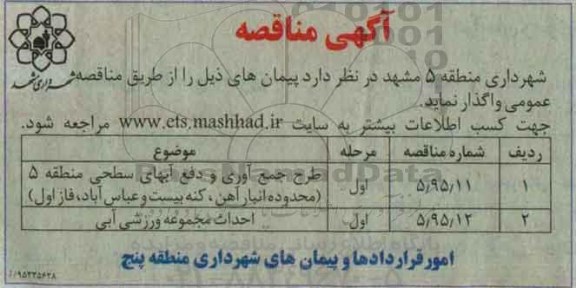 آگهی مناقصه
شهرداری مشهد
شهرداری منطقه ۵ مشهد در نظر دارد پیمان های ذیل را از طریق مناقصه
عمومی واگذار نماید.
جهت کسب اطلاعات بیشتر به سایت www.ets.mashhad.ir مراجعه شود.
ردیف شماره مناقصه مرحله موضوع
۱ ۵٫۹۵٫۱۱ اول طرح جمع آوری و دفع آبهای سطحی منطقه ۵
(محدوده انبار آهن، کنه بیست و عباس آباد، فاز اول)
۲ ۵٫۹۵٫۱۲ اول احداث مجموعه ورزشی آبی
امور قراردادها و پیمان های شهرداری منطقه پنج
/۹۵۲۲۵۶۲۸